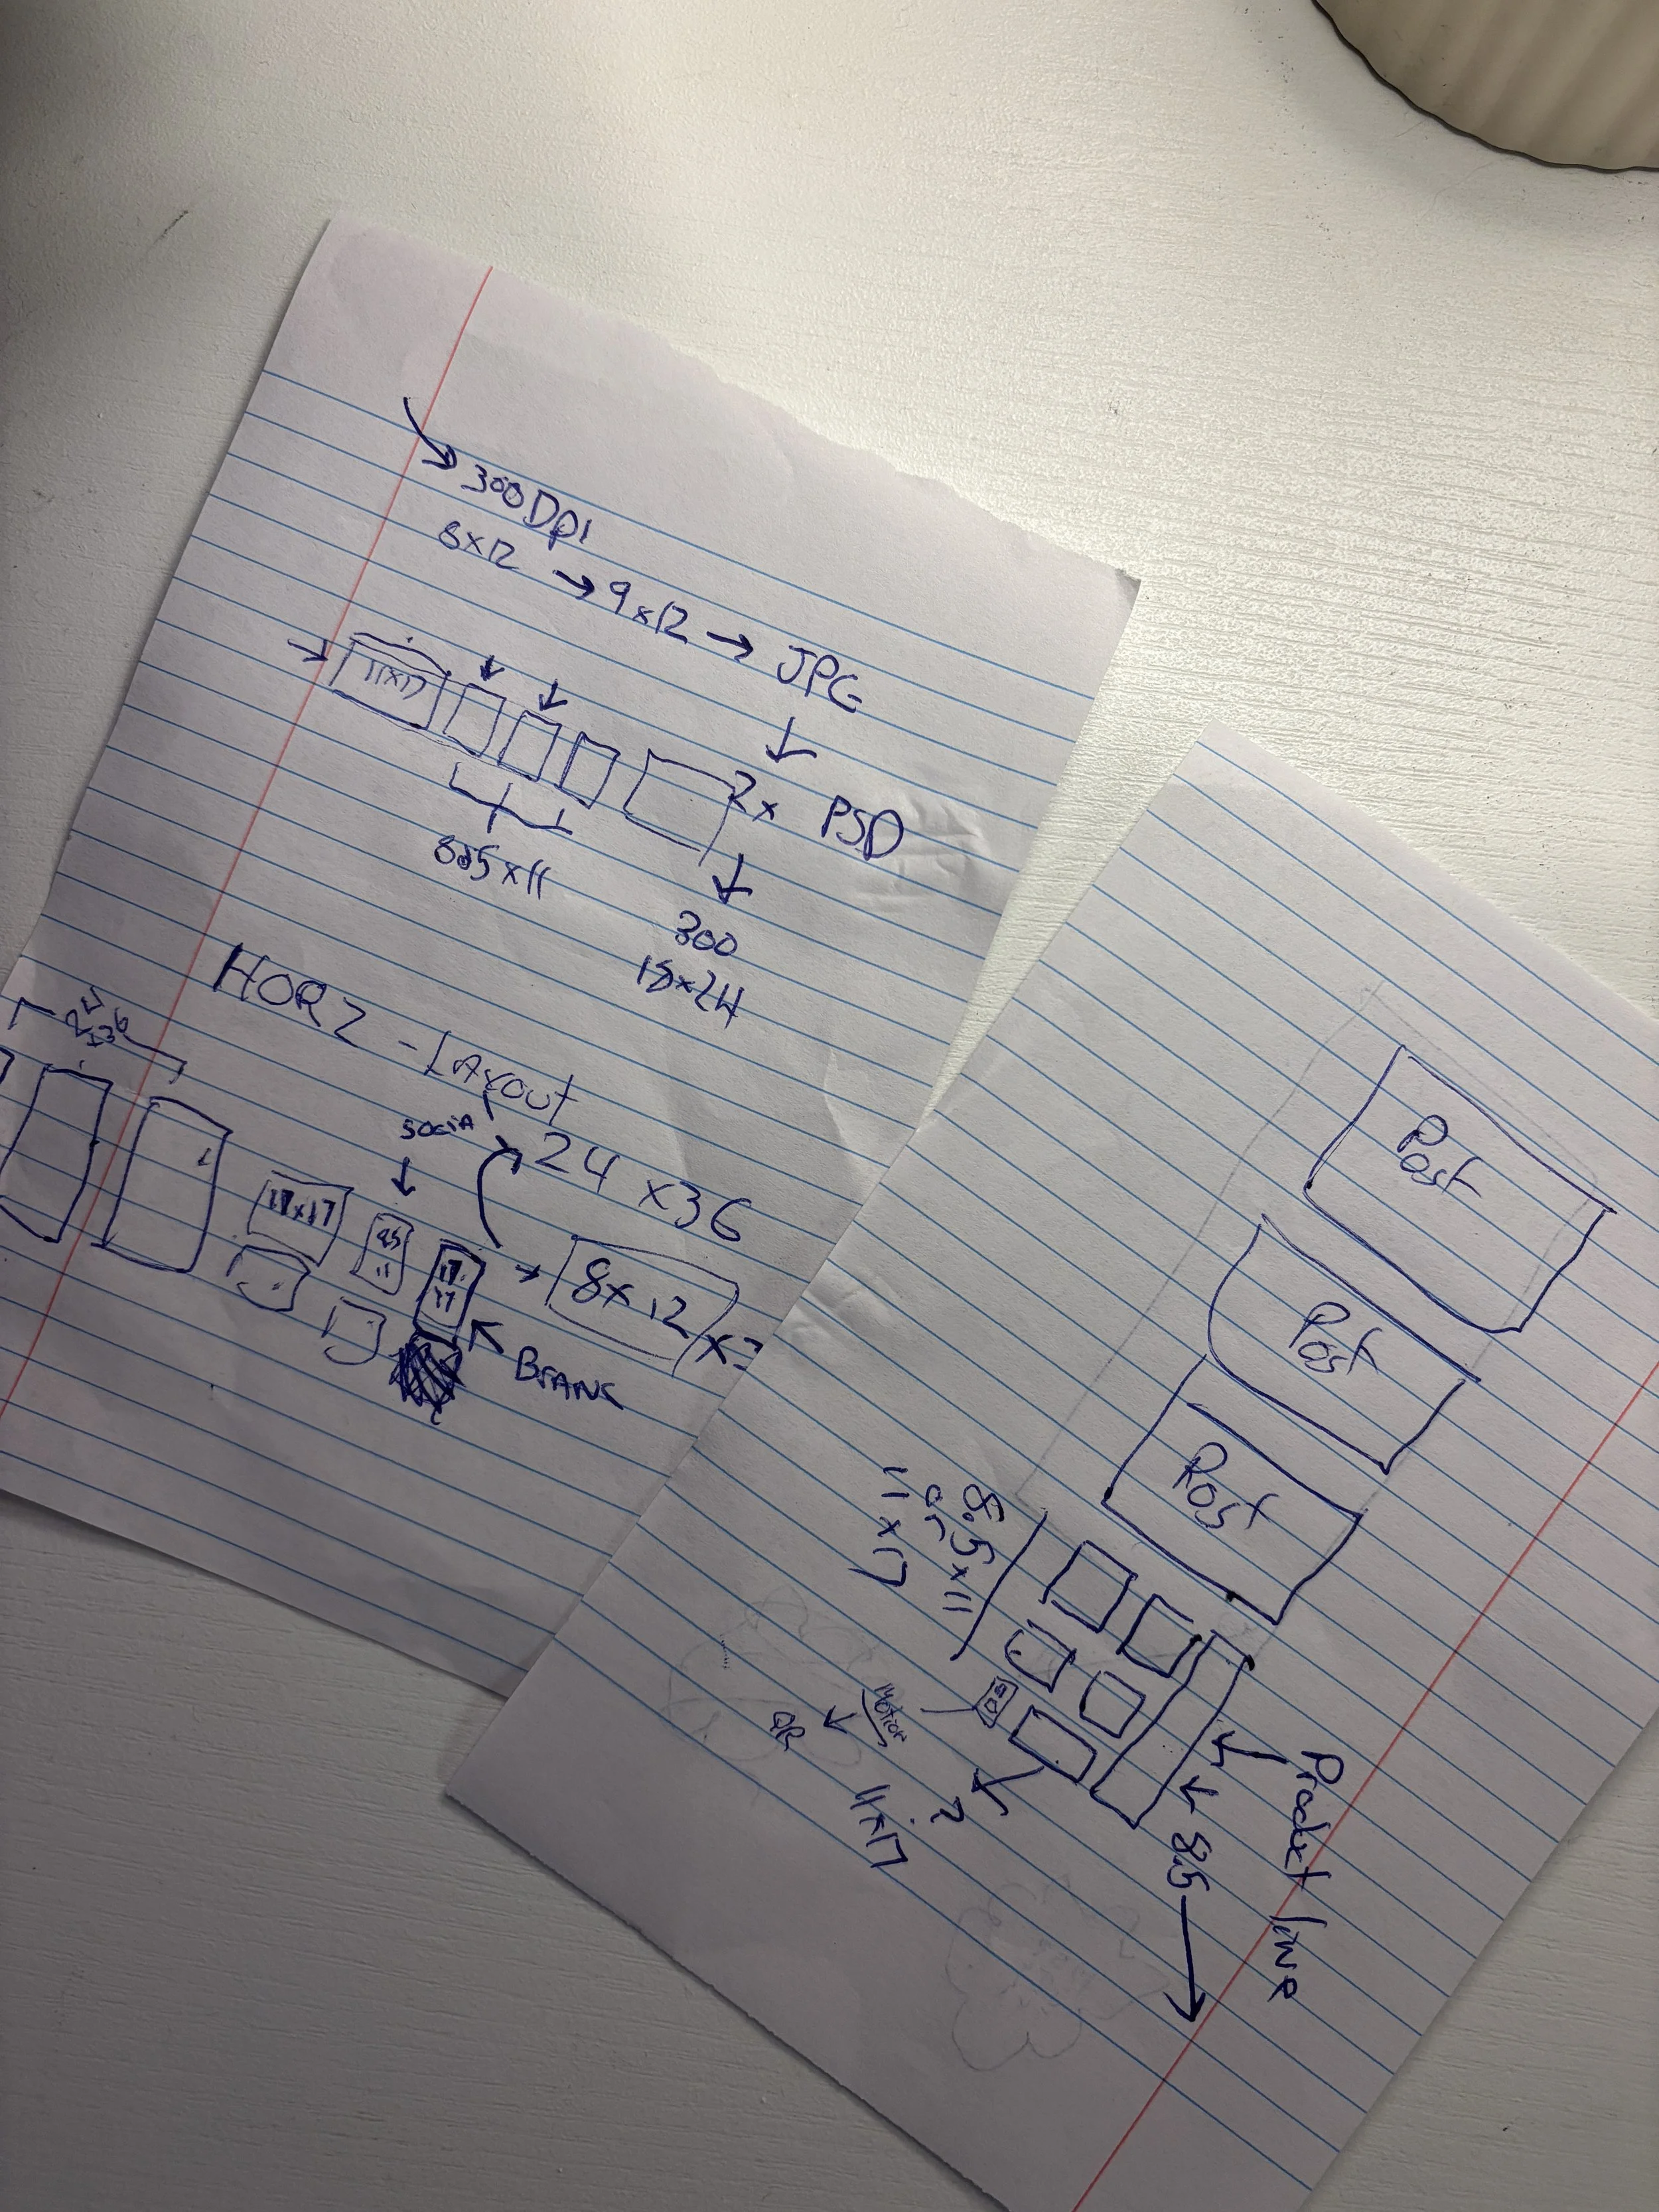 300 Dpi
8x12 → 9x12 → JPG
11x17
2x PSD
8.5x11
300
18x24
HORZ - Layout
24
x36
social
24 x36
11x17
8.5
11
8x12
Post
Post
Post
8.5x11
or
11x17
Motion
QR
?
11x17
Product line
8.5